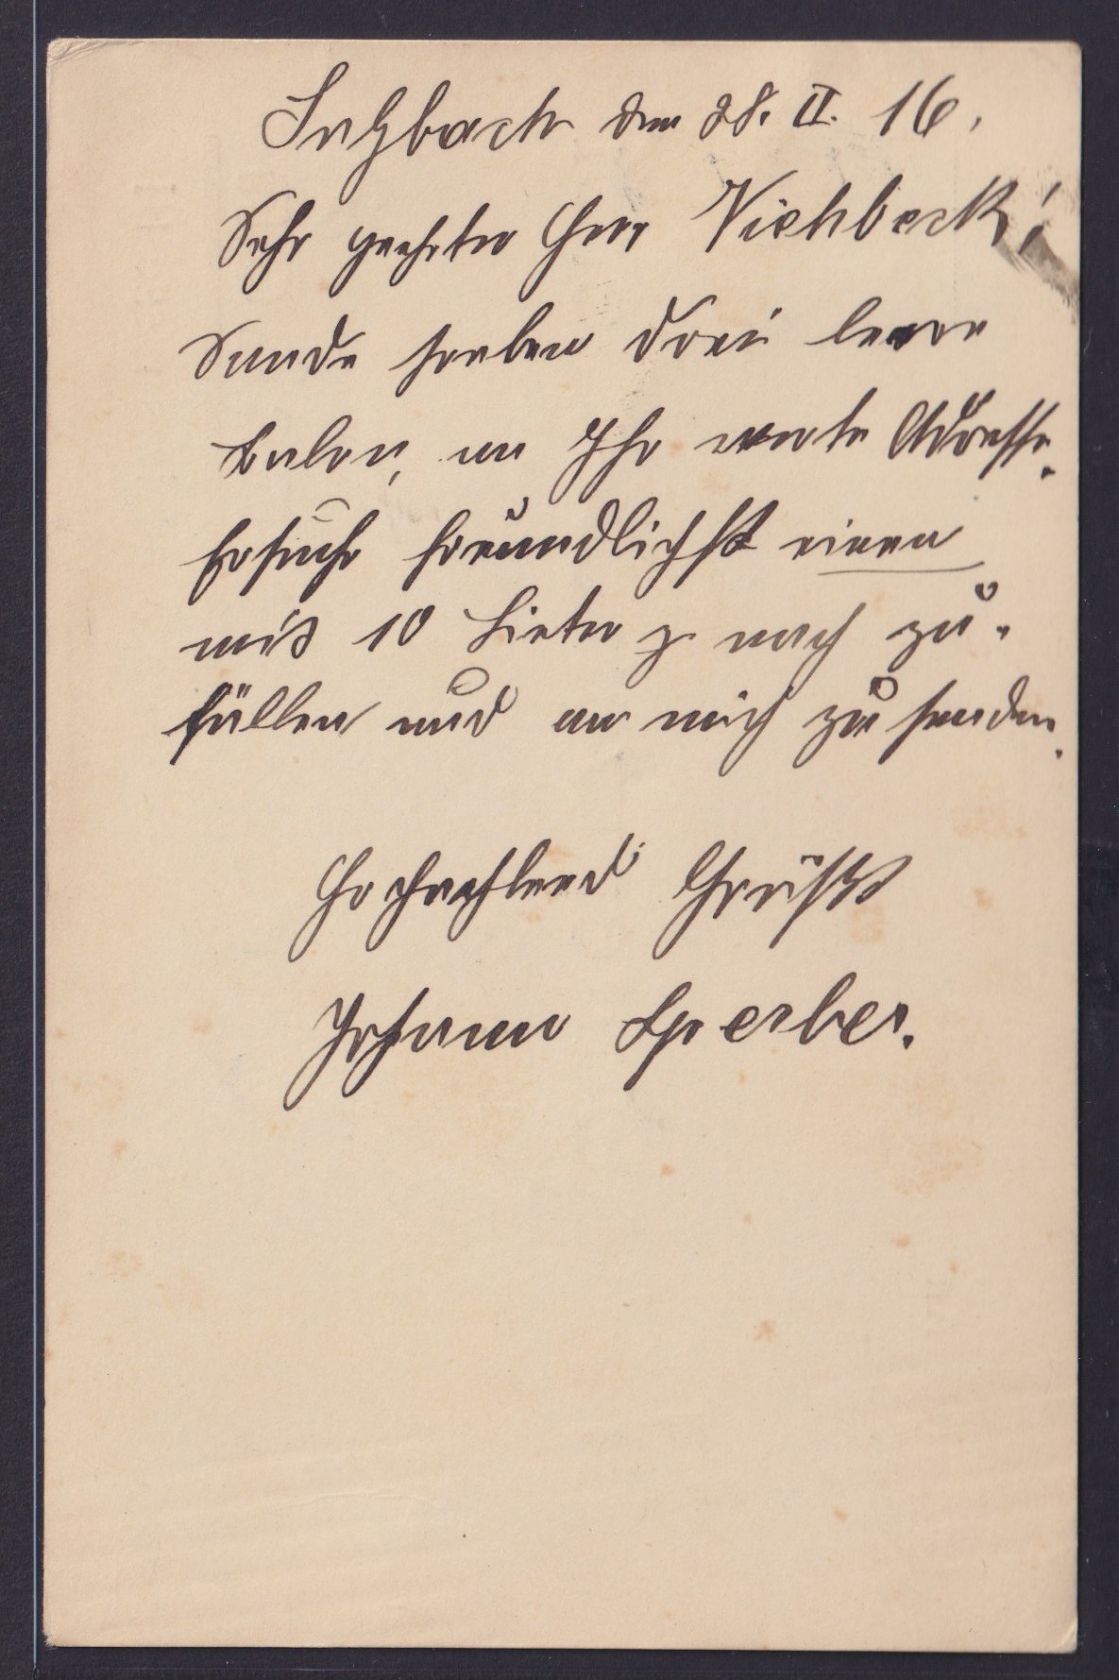 Salzbach den 28. II. 16.
Sehr geehrter Herr Viehbeck!
Sende soeben drei leere
an Ihr werte Adresse.
Ersuche freundlichst einen
mit 10 Lieter nach zu-
füllen und an mich zu senden.
Hochachtend Grüßt
Johann Sperber.